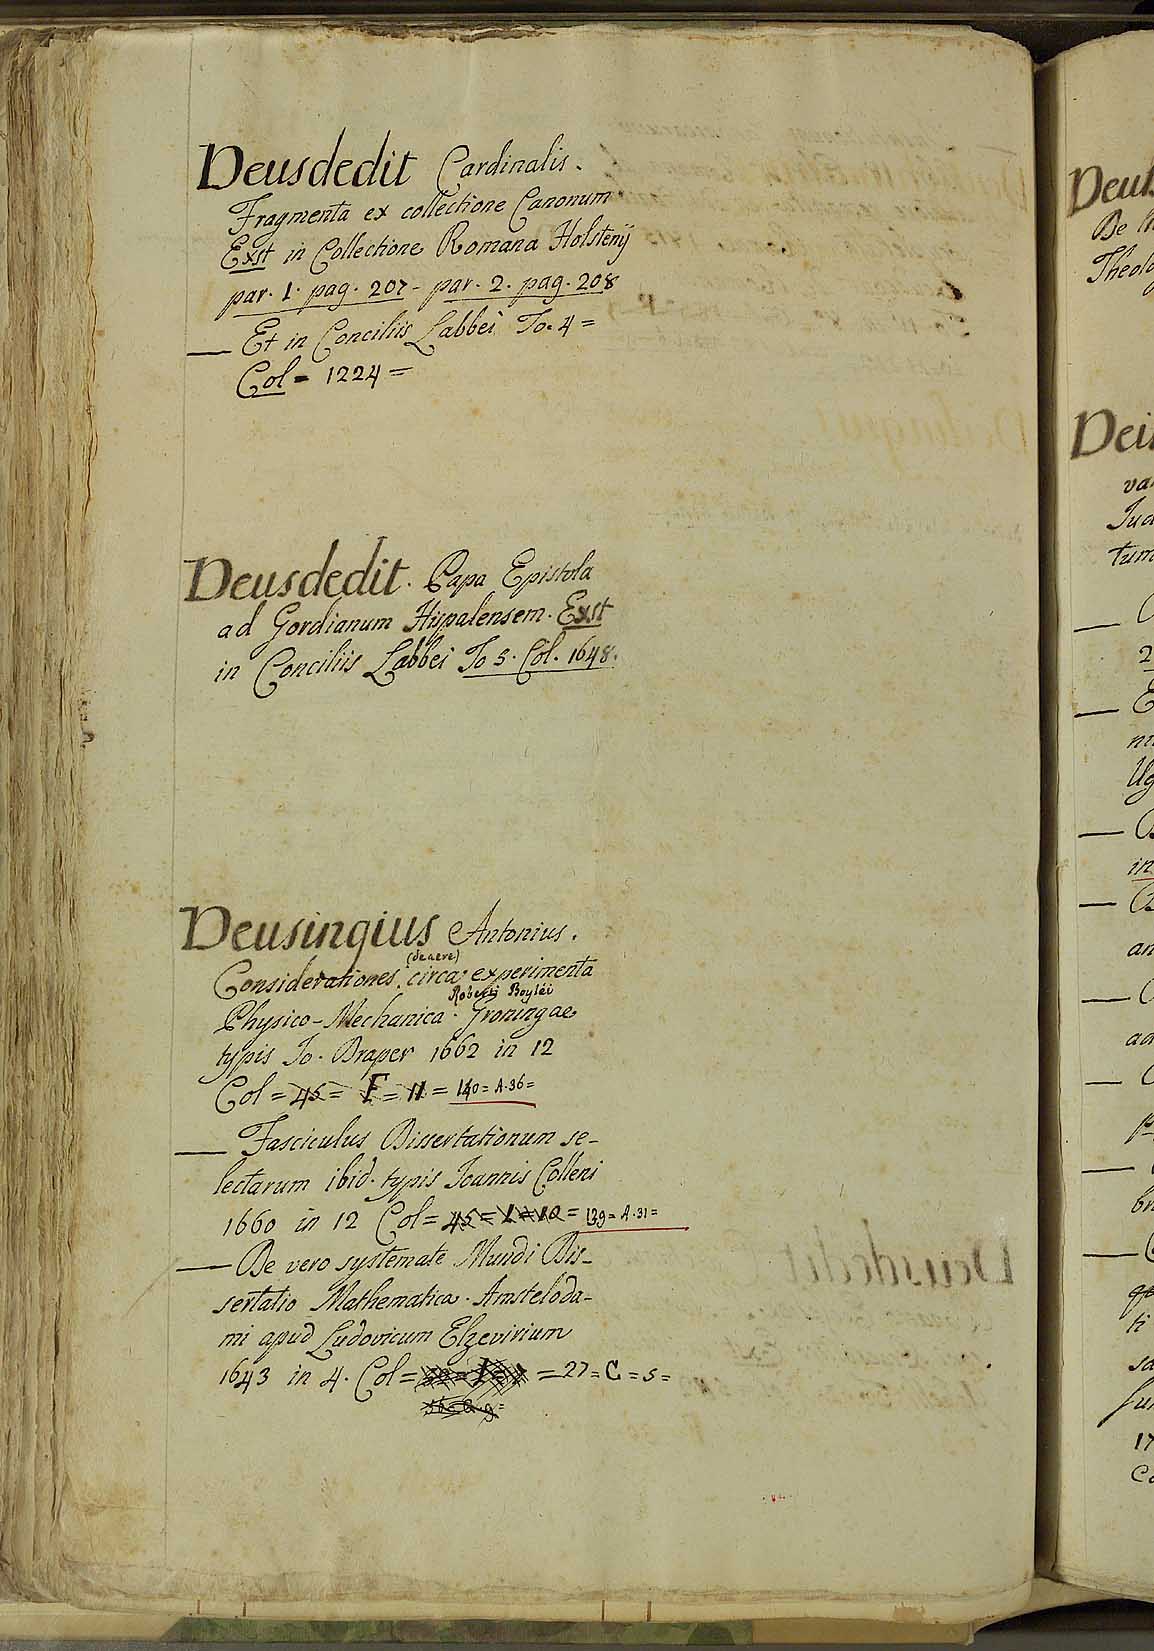 Deusdedit Cardinalis.
Fragmenta ex collectione Canonum
Exst in Collectione Romana Holstenij
par. 1. pag. 207 - par. 2. pag. 208
— Et in Conciliis Labbei To. 4 =
Col = 1224 =
Deusdedit. Papa Epistola
ad Gordianum Hispalensem. Exst
in Conciliis Labbei To 5. Col. 1648.
Deusingius Antonius.
(de aere)
Considerationes circa experimenta
Roberti Boyléi
Physico-Mechanica. Groningae
typis Jo. Draper 1662 in 12
Col = 45 = F = 11 = 140 = A. 36 =
— Fasciculus Dissertationum se-
lectarum ibid. typis Joannis Colleni
1660 in 12 Col = 45 = = 139 = A. 31 =
— De vero systemate Mundi Dis-
sertatio Mathematica. Amsteloda-
mi apud Ludovicum Elzevirium
1643 in 4. Col = = 27 = C = 5 =
Deus
De
Theolo
Dei
va
Jud
tum
2
in
an